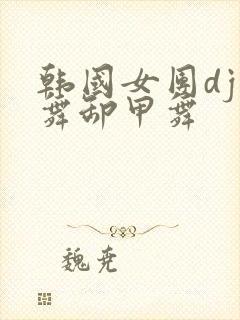 韩国女团dj
舞卸甲舞
魏尭